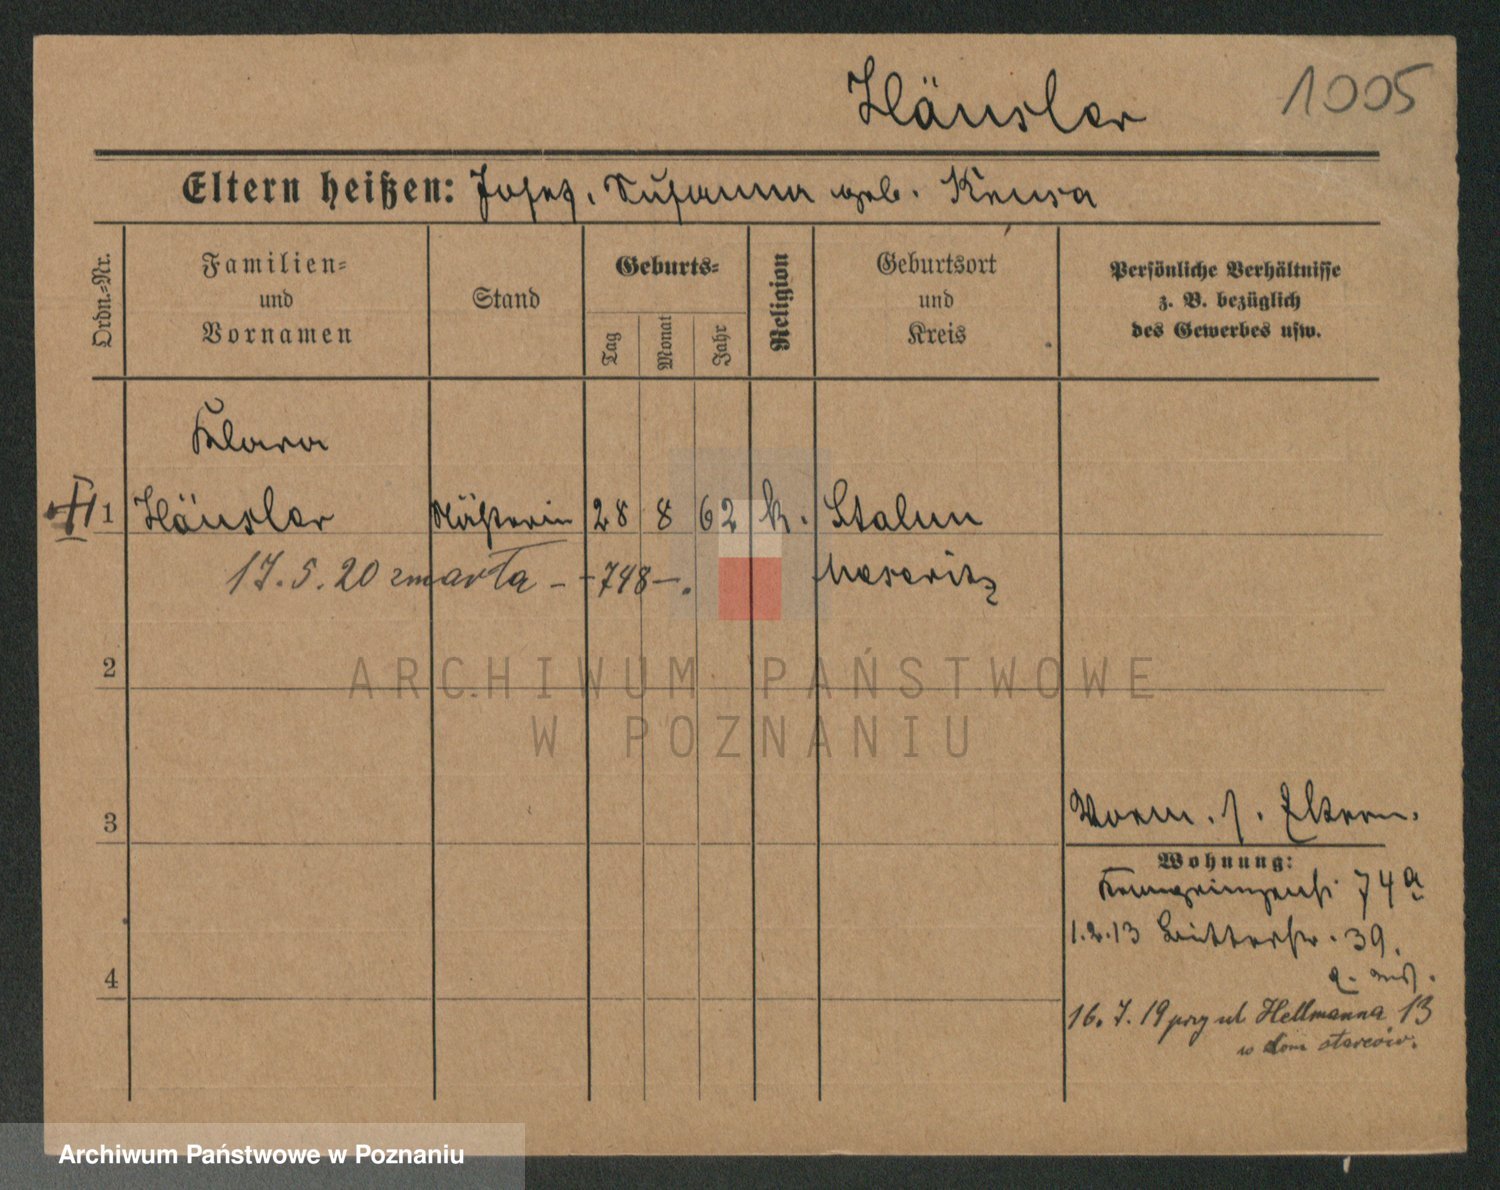 Häusler 1005
Eltern heißen: Josef, Susanna geb.
Ordn.-Nr.
Familien-
und
Vornamen
Stand
Geburts-
Tag
Monat
Jahr
Religion
Geburtsort
und
Kreis
Persönliche Verhältnisse
z. B. bezüglich
des Gewerbes usw.
Klara
1 Häusler Näherin 28 8 62 k. Stalun
17.5.20 zmarła - 748 -. Meseritz
2
ARCHIWUM PAŃSTWOWE
W POZNANIU
3
Vorm. s. Eltern.
Wohnung:
74a
1.2.13 Ritterstr. 39.
4
16.7.19 przy ul Hellmanna 13
w dom starców.
Archiwum Państwowe w Poznaniu